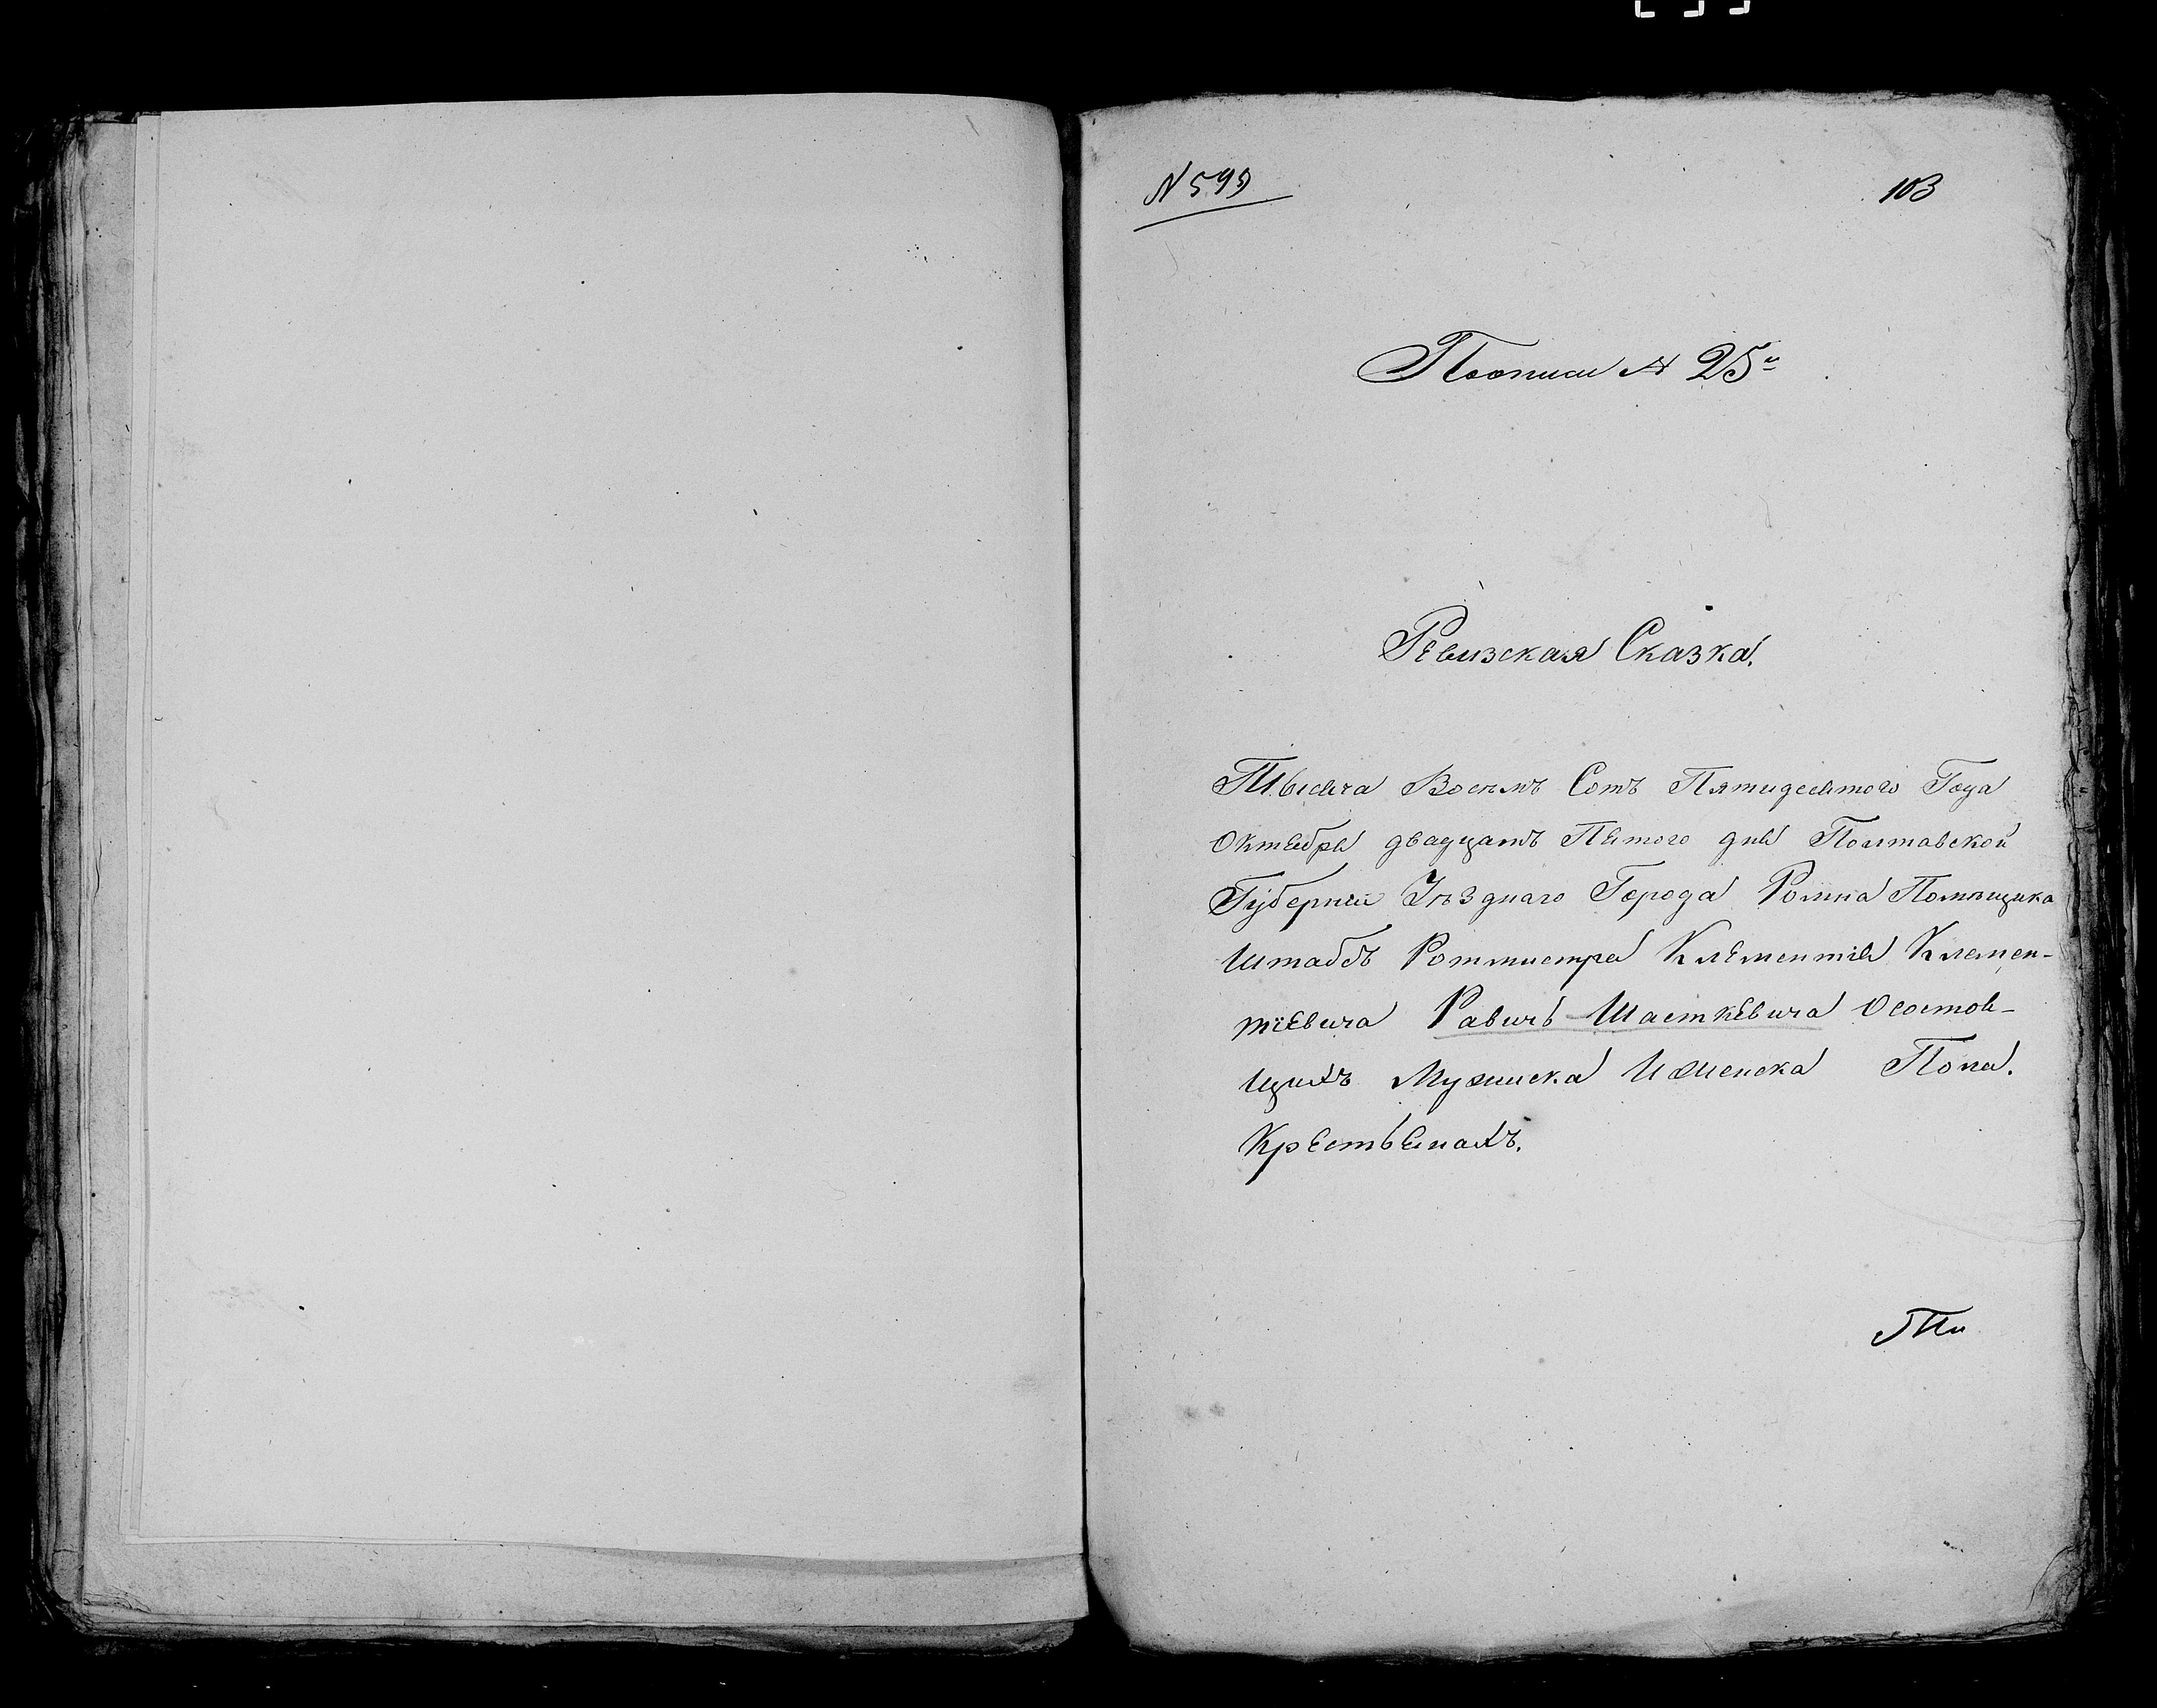 N 599
103
Поописи № 25й
Ревизская Сказка.
Тысяча Восемъ Сотъ Пятидесятого Года
Октября двадцать Пятого дня Полтавской
Губернии Уѣзднаго Города Ромна Помѣщика
Штабъ Ротмистра Клементия Клемен-
тіевича Равичъ Шасткевича Осостоя-
щихъ Мужиска Иженска Пола.
Крестьянахъ.